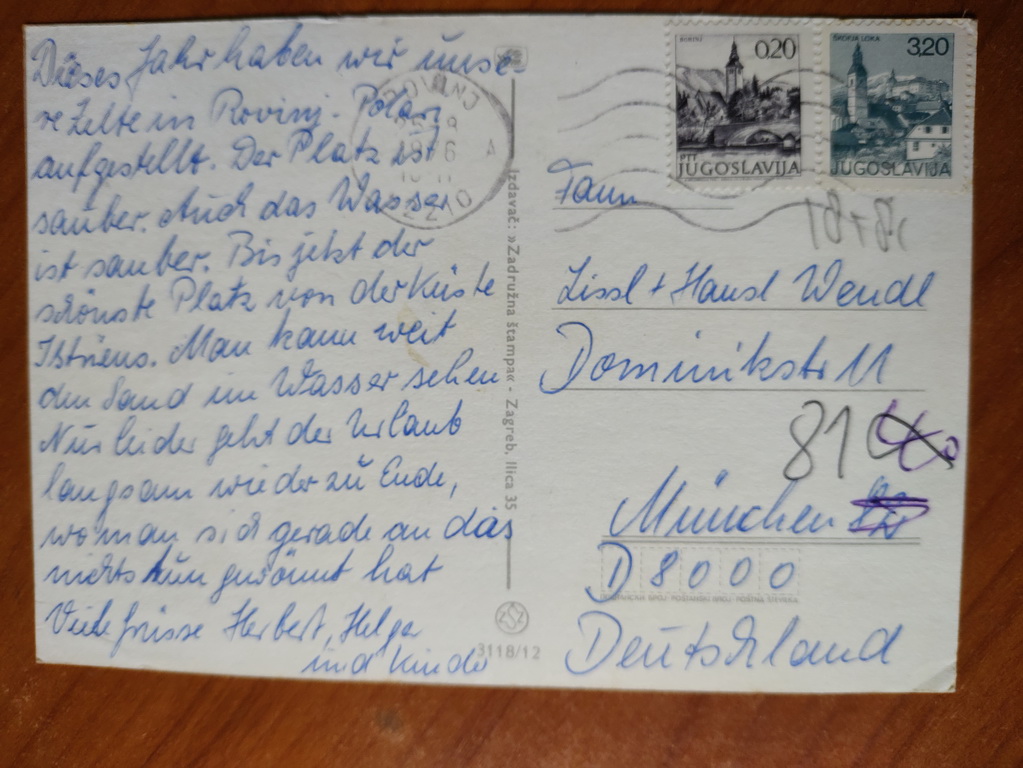 Dieses Jahr haben wir unse-
re Zelte in Rovinj - Polari
aufgestellt. Der Platz ist
sauber. Auch das Wasser
ist sauber. Bis jetzt der
schönste Platz von der Küste
Istriens. Man kann weit
den Sand im Wasser sehen
Nur leider geht der Urlaub
langsam wieder zu Ende,
wo man sich gerade an das
nichts tun gewönnt hat
Viele Grüsse Herbert, Helga
und Kinder
ROVINJ
A
52210
Izdavač: »Zadružna štampa« - Zagreb, Ilica 35
3118/12
0,20
PTT
JUGOSLAVIJA
ŠKOFJA LOKA
3,20
JUGOSLAVIJA
Fam
Lissl + Hansl Wendl
Dominikstr 11
81
München
D 8000
Deutschland